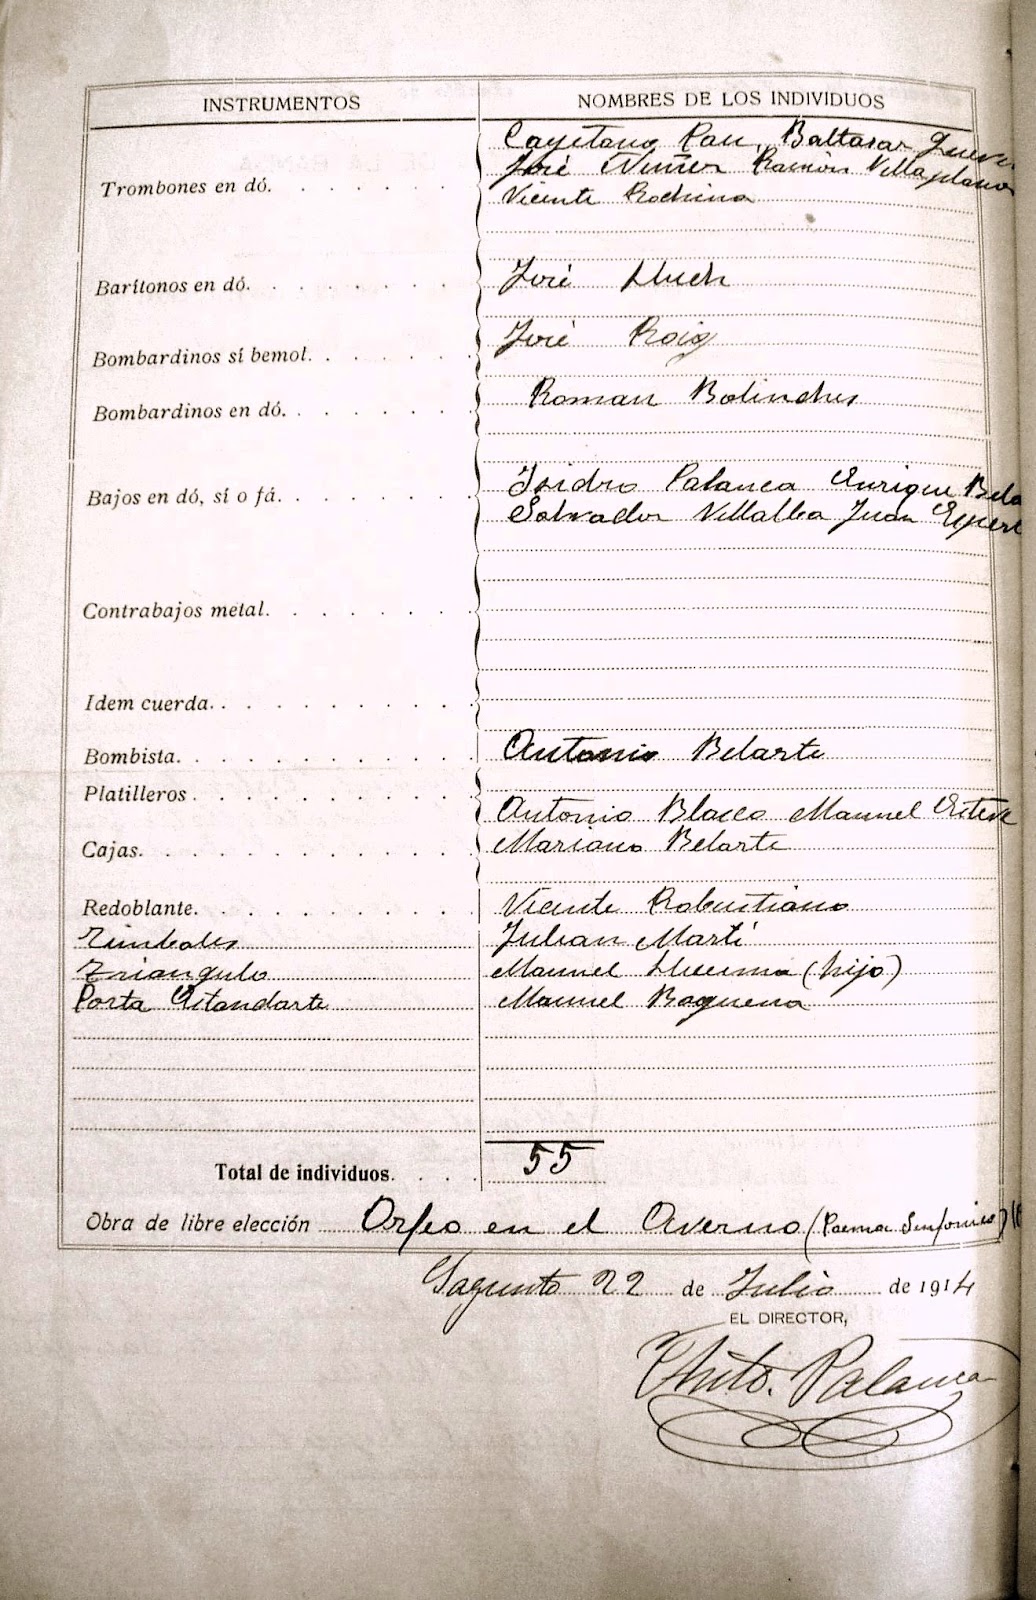 INSTRUMENTOS NOMBRES DE LOS INDIVIDUOS
Cayetano Pau, Baltasar
José Ramón Villaplana
Trombones en dó. Vicente Rochina
Barítonos en dó. José Lluch
Bombardinos sí bemol. José Roig
Bombardinos en dó. Roman Bolinches
Bajos en dó, sí o fá. Isidro Palanca Enrique
Salvador Villalba Juan
Contrabajos metal.
Idem cuerda.
Bombista. Antonio Belarte
Platilleros
Antonio Blasco Manuel Esteve
Cajas. Mariano Belarte
Redoblante. Vicente Robustiano
Timbales Julian Martí
Triangulo Manuel (hijo)
Porta Estandarte Manuel Baguena
Total de individuos. 55
Obra de libre elección Orfeo en el Averno (Poema Sinfonico)
Sagunto 22 de Julio de 1914
EL DIRECTOR,
Palanca